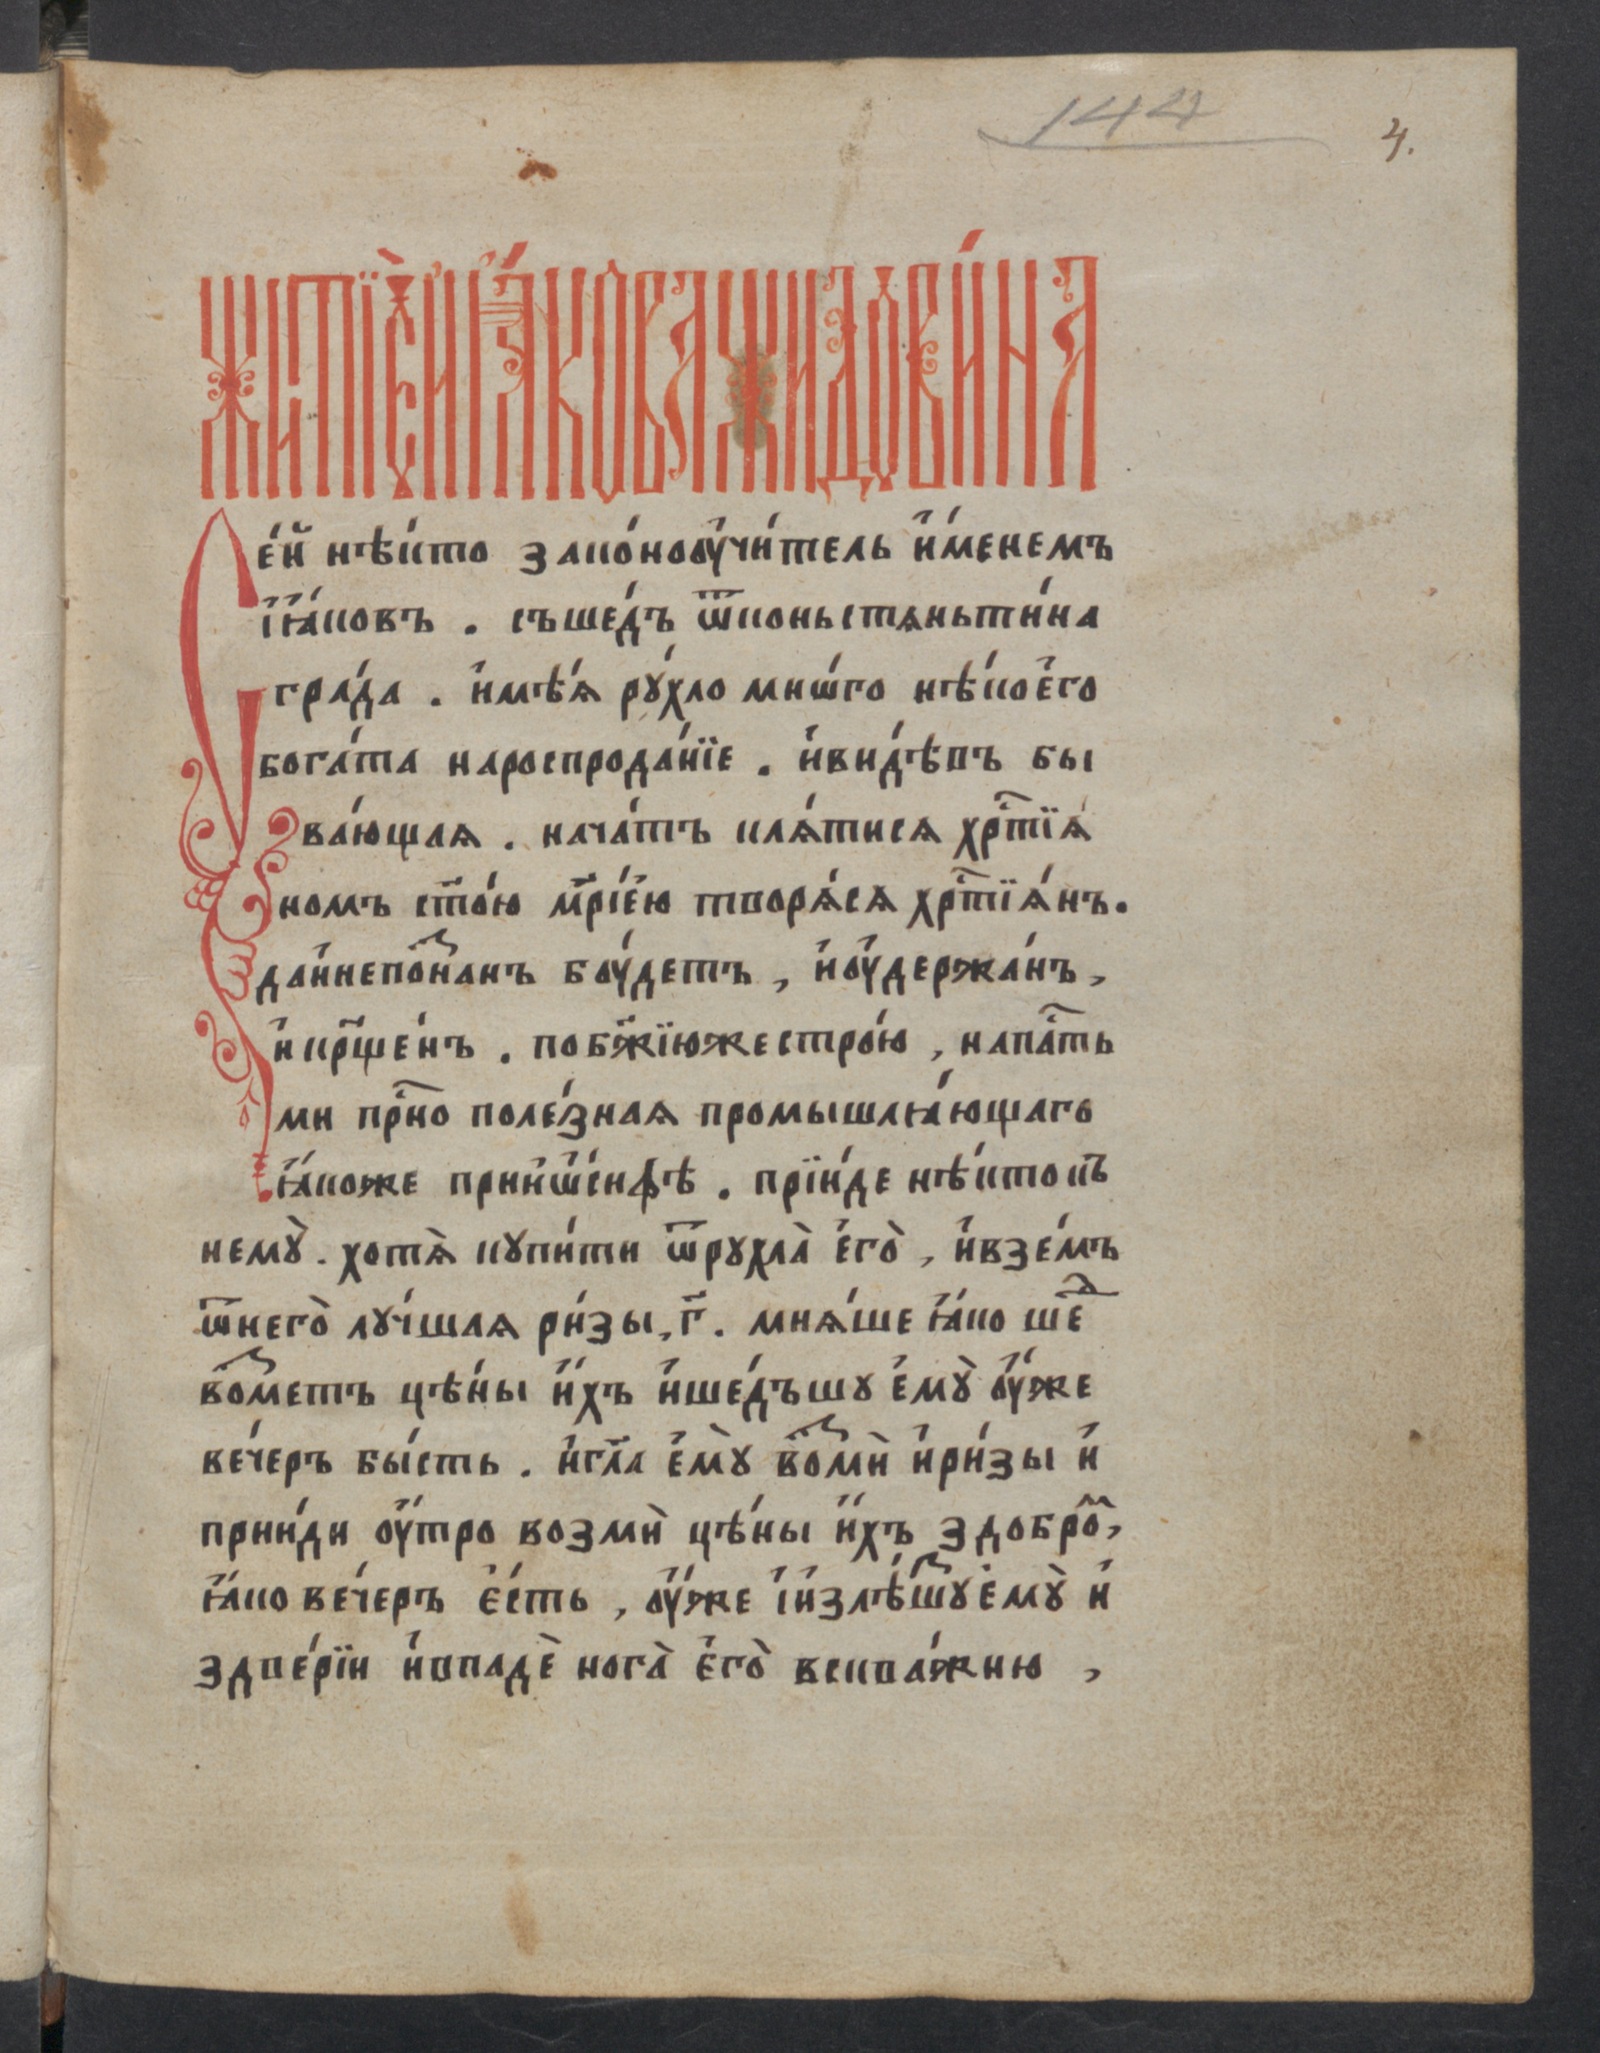 144
4.
ЖИТЇЕ ИꙖКОВА ЖИДОВИНА
Се́й нѣ́кто зако́ноѹчи́тель и҆́менемъ
і҆ꙗ́ковъ . съше́дъ ѿконьстѧньти́на
гра́да . и҆мѣ́ѧ ру́хло мнѡ́го нѣ́кое҆го
бога́та нароспрода́нїе . и҆ви́дѣвъ бы
ва́ющаѧ . нача́тъ клѧ́тисѧ хрⷭ҇тїѧ́
номъ ст҃о́ю мр҃і́е҆ю творѧ́сѧ хрⷭ҇тїѧ́нъ.
даи҆непоⷥ҇на́нъ бѹ́детъ , и҆ѹ҆держа́нъ ,
и҆кр҃ще́нъ . поб҃жїюжестро́ю , напа́сть
ми прⷭ҇но поле́знаѧ промышлꙗ́ющаго
ꙗ҆́коже прии҆ѡ҆́сифѣ . прїи́де нѣ́ктокъ
нему̀ . хотѧ̀ купи́ти ѿрухла̀ е҆го̀ , и҆взе́мъ
ѿнего̀ лу́чшаѧ ри́зы , г҃ . мнѧ́ше ꙗ҆́ко шеⷣ
воⷥметъ цѣ́ны и҆́хъ и҆ше́дъшу е҆му̀ ѹ҆́же
ве́черъ бы́сть . и҆гл҃а е҆му̀ воⷥмѝ и҆ри́зы и҆
прии́ди ѹ҆́тро возмѝ цѣ́ны и҆́хъ здоброⷨ ,
ꙗ҆́ко ве́черъ є҆́сть , ѹ҆́же і҆и҆злѣ́ⷥшуе҆му̀ и҆
здве́рїи и҆впадѐ нога̀ е҆го̀ всква́жню ,